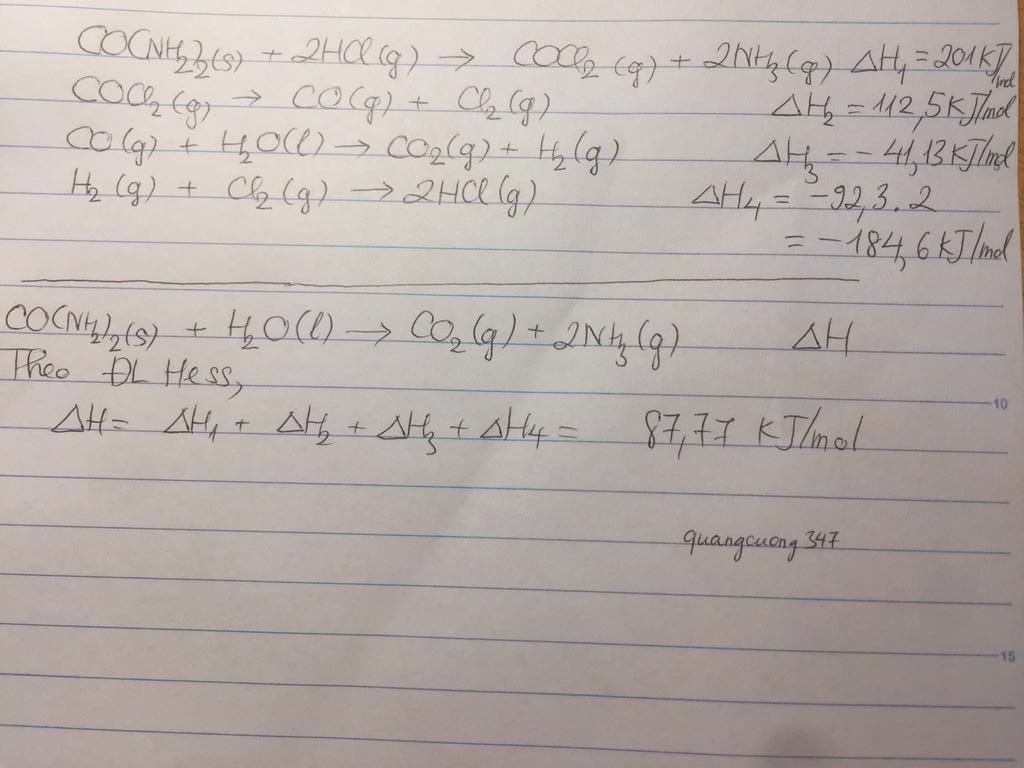 CO(NH₂)₂(s) + 2HCl(g) → COCl₂(g) + 2NH₃(g) ΔH₁ = 201KJ/mol
COCl₂(g) → CO(g) + Cl₂(g) ΔH₂ = 112,5KJ/mol
CO(g) + H₂O(l) → CO₂(g) + H₂(g) ΔH₃ = -41,13KJ/mol
H₂(g) + Cl₂(g) → 2HCl(g) ΔH₄ = -92,3.2
= -184,6KJ/mol
CO(NH₂)₂(s) + H₂O(l) → CO₂(g) + 2NH₃(g) ΔH
Theo ĐL Hess,
10
ΔH = ΔH₁ + ΔH₂ + ΔH₃ + ΔH₄ = 87,77 KJ/mol
quangcuong347
15